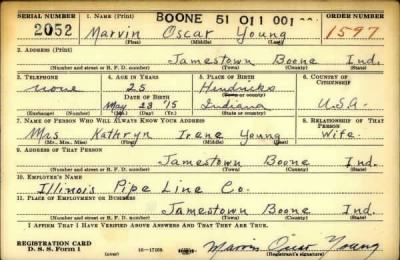 BOONE 51 011 001
SERIAL NUMBER 1. NAME (Print) ORDER NUMBER
2052 Marvin Oscar Young 1597
(First) (Middle) (Last)
2. ADDRESS (Print)
Jamestown Boone Ind.
(Number and street or R. F. D. number) (Town) (County) (State)
3. TELEPHONE 4. AGE IN YEARS 5. PLACE OF BIRTH 6. COUNTRY OF CITIZENSHIP
none 25 Hendricks
DATE OF BIRTH (Town or county)
May 23 '15 Indiana U.S.A.
(Exchange) (Number) (Mo.) (Day) (Yr.) (State or country)
7. NAME OF PERSON WHO WILL ALWAYS KNOW YOUR ADDRESS 8. RELATIONSHIP OF THAT PERSON
Mrs Kathryn Irene Young Wife.
(Mr., Mrs., Miss) (First) (Middle) (Last)
9. ADDRESS OF THAT PERSON
Jamestown Boone Ind.
(Number and street or R. F. D. number) (Town) (County) (State)
10. EMPLOYER'S NAME
Illinois Pipe Line Co.
11. PLACE OF EMPLOYMENT OR BUSINESS
Jamestown Boone Ind.
(Number and street or R. F. D. number) (Town) (County) (State)
I AFFIRM THAT I HAVE VERIFIED ABOVE ANSWERS AND THAT THEY ARE TRUE.
REGISTRATION CARD
D. S. S. Form 1 (over) Marvin Oscar Young
(Registrant's signature)